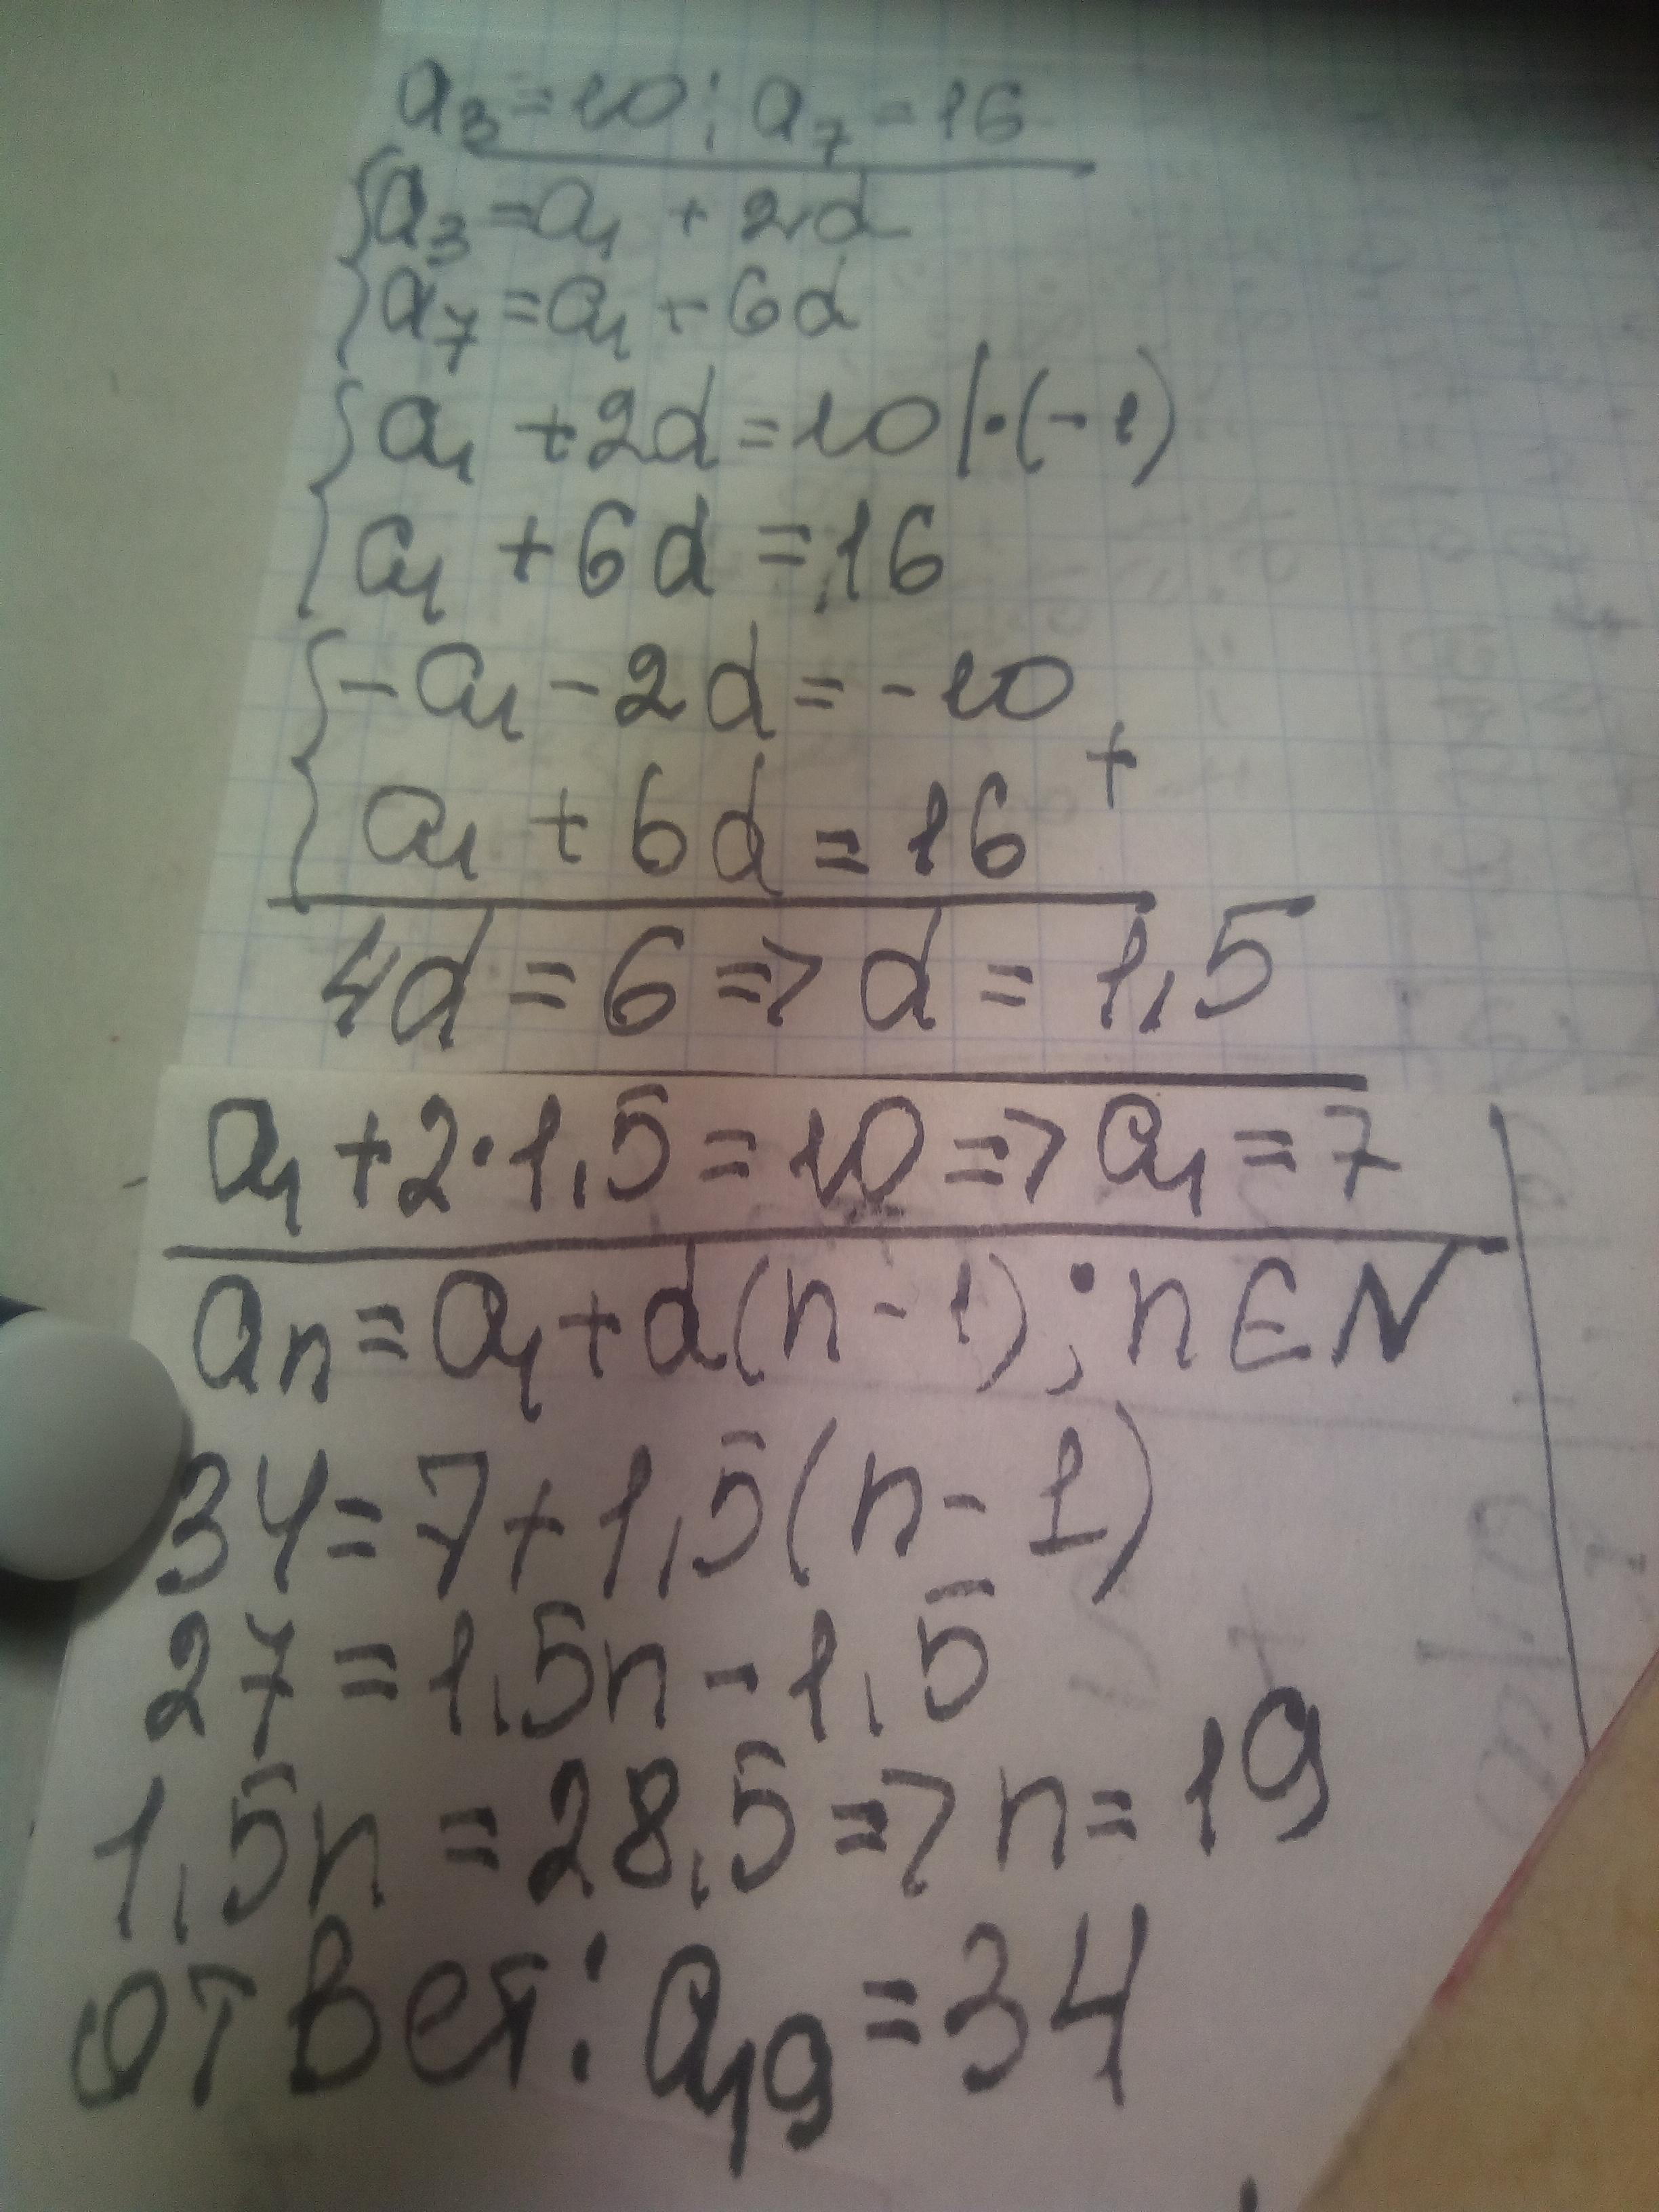 a₃=10; a₇=16
{a₃=a₁+2d
{a₇=a₁+6d
{a₁+2d=10|·(-1)
{a₁+6d=16
{-a₁-2d=-10
+
{a₁+6d=16
4d=6=>d=1,5
a₁+2·1,5=10=>a₁=7
aₙ=a₁+d(n-1); n∈N
34=7+1,5(n-1)
27=1,5n-1,5
1,5n=28,5=>n=19
ответ: a₁₉=34